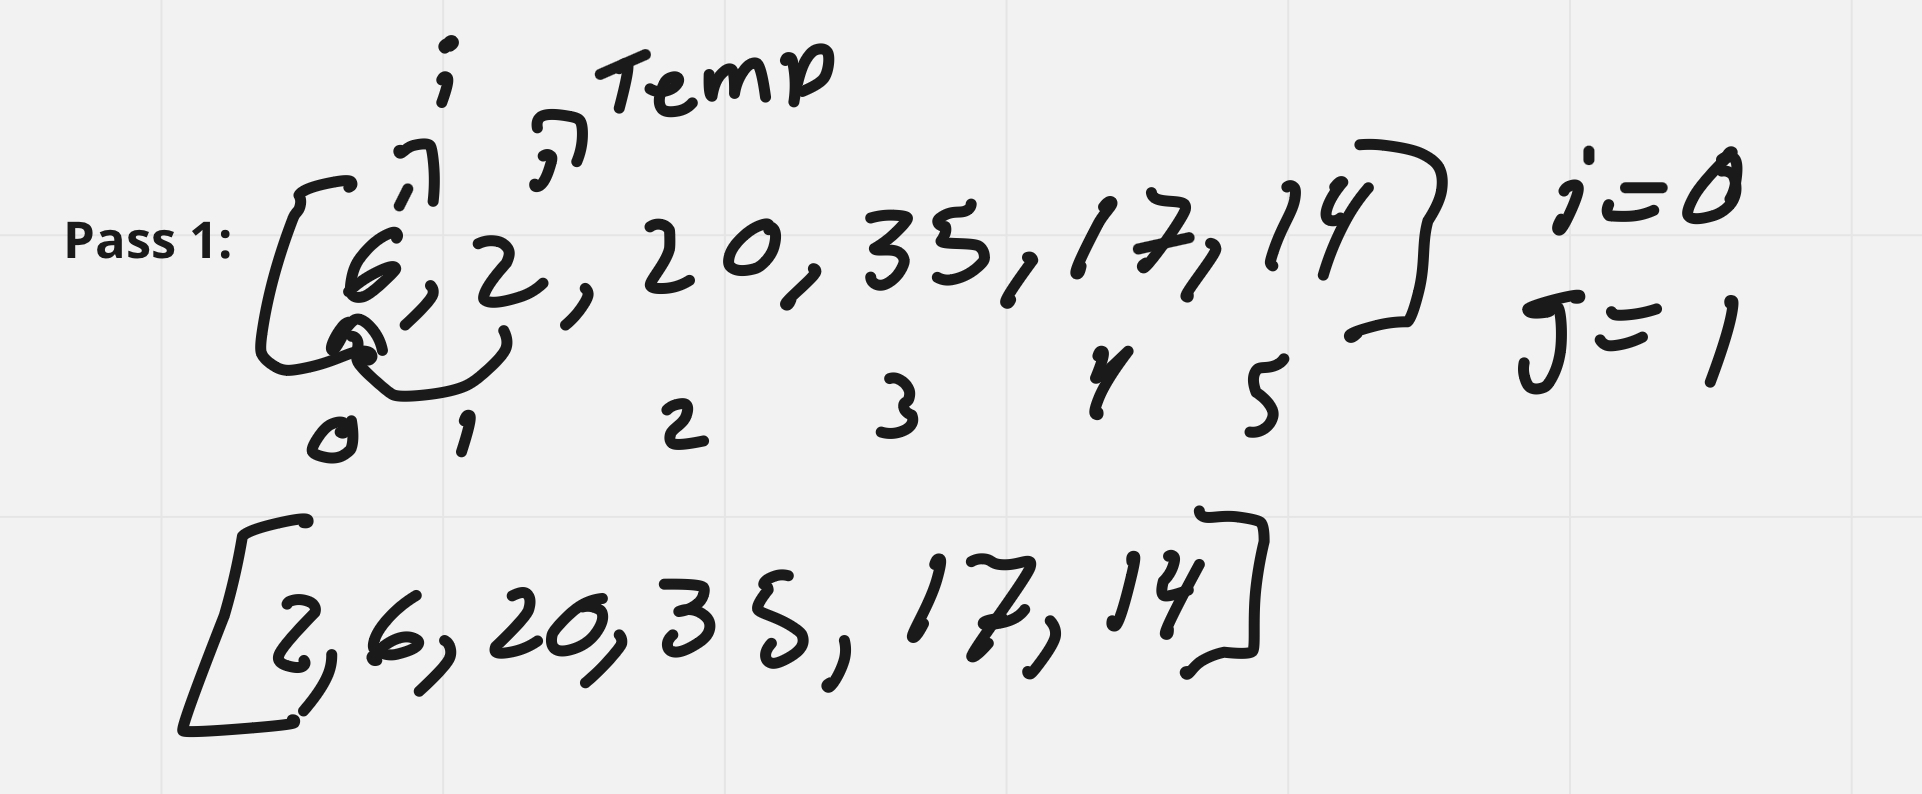 i Temp
Pass 1: [6, 2, 20, 35, 17, 14] i=0
J=1
0 1 2 3 4 5
[2, 6, 20, 35, 17, 14]